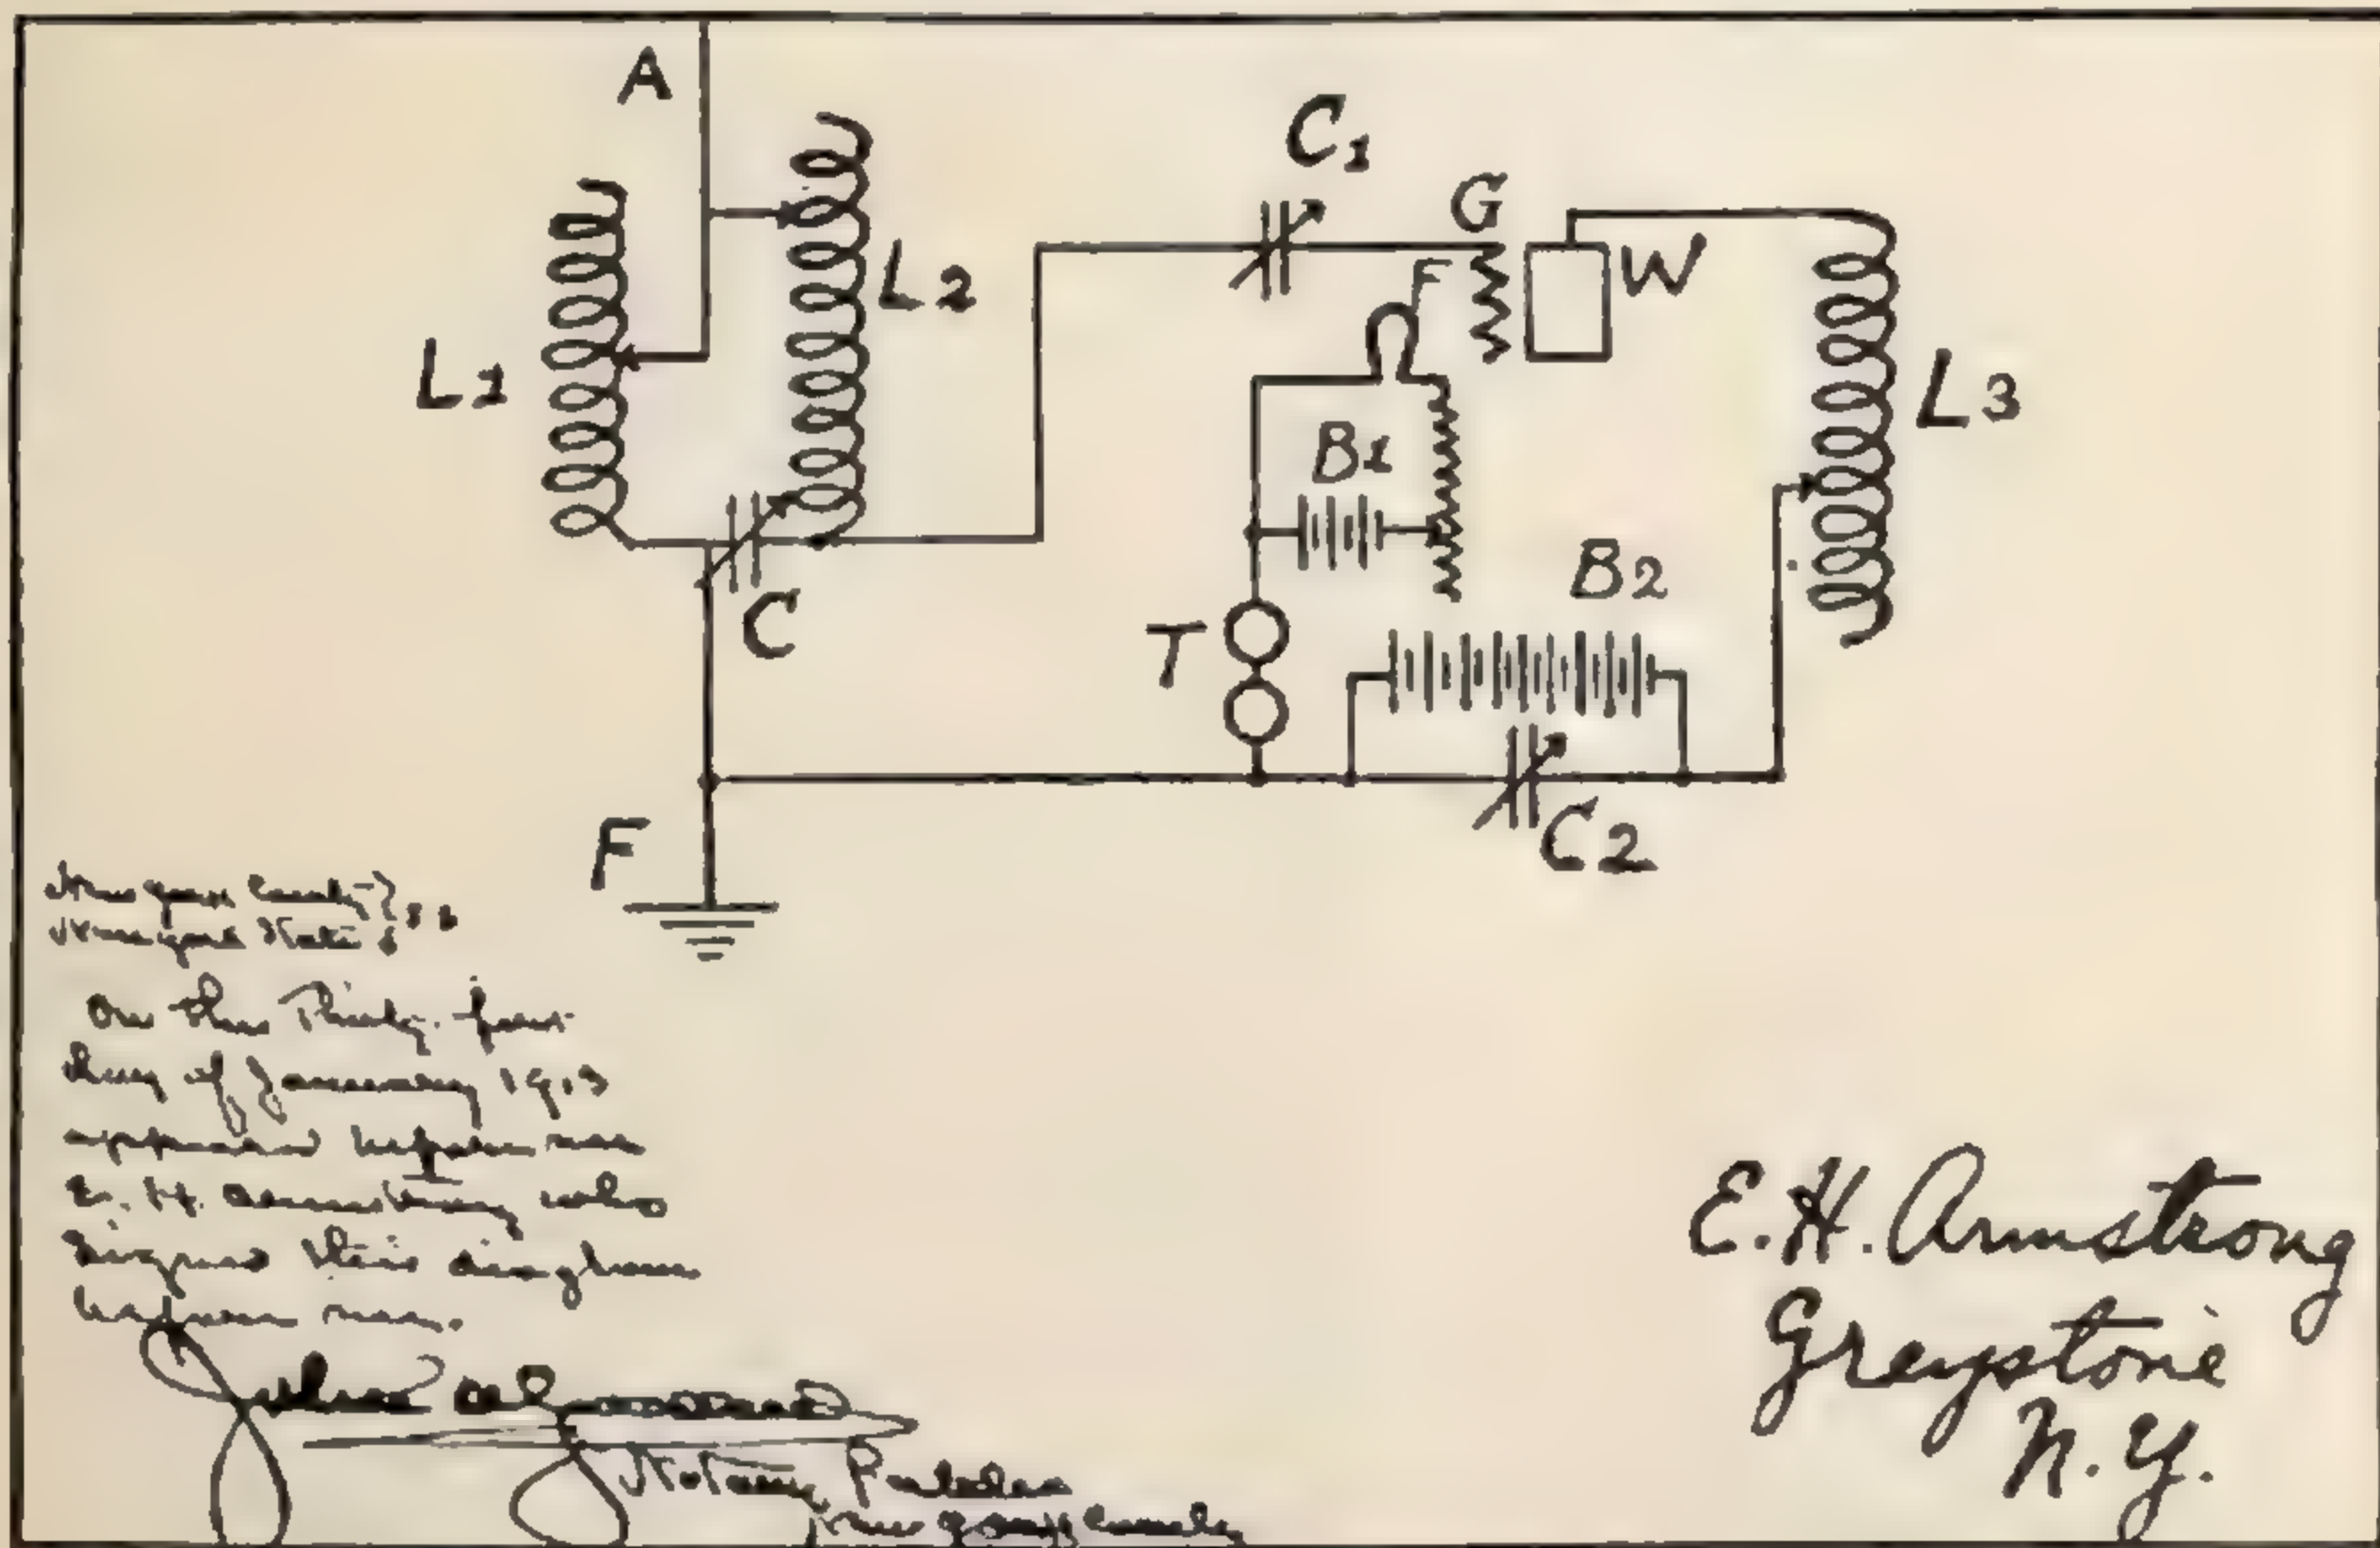 A
C1
G
L2
F
W
L1
L3
B1
B2
C
T
F
C2
New York County } ss
New York State }
On this Thirty-first
day of January 1913
appeared before me
E. H. Armstrong who
signed this diagram
before me.
Notary Public
New York County
E.H. Armstrong
Greystone
N.Y.